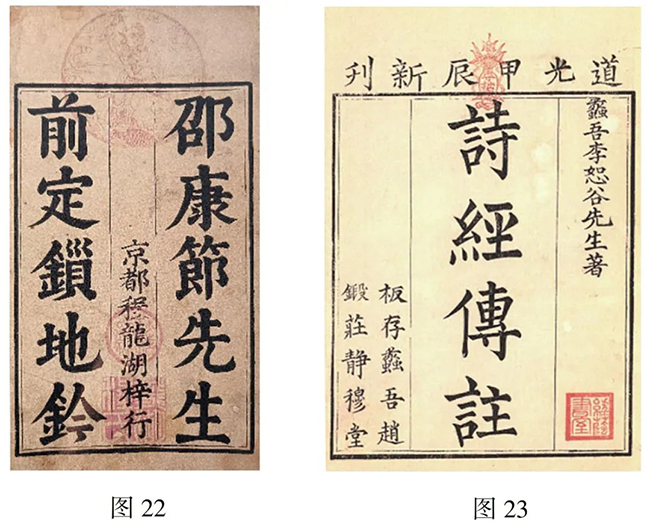 邵康節先生
京都程龍湖梓行
前定鎻地鈐
图 22
道光甲辰新刋
蠡吾李恕谷先生著
詩經傳註
板存蠡吾趙
鍛莊静穆堂
图 23